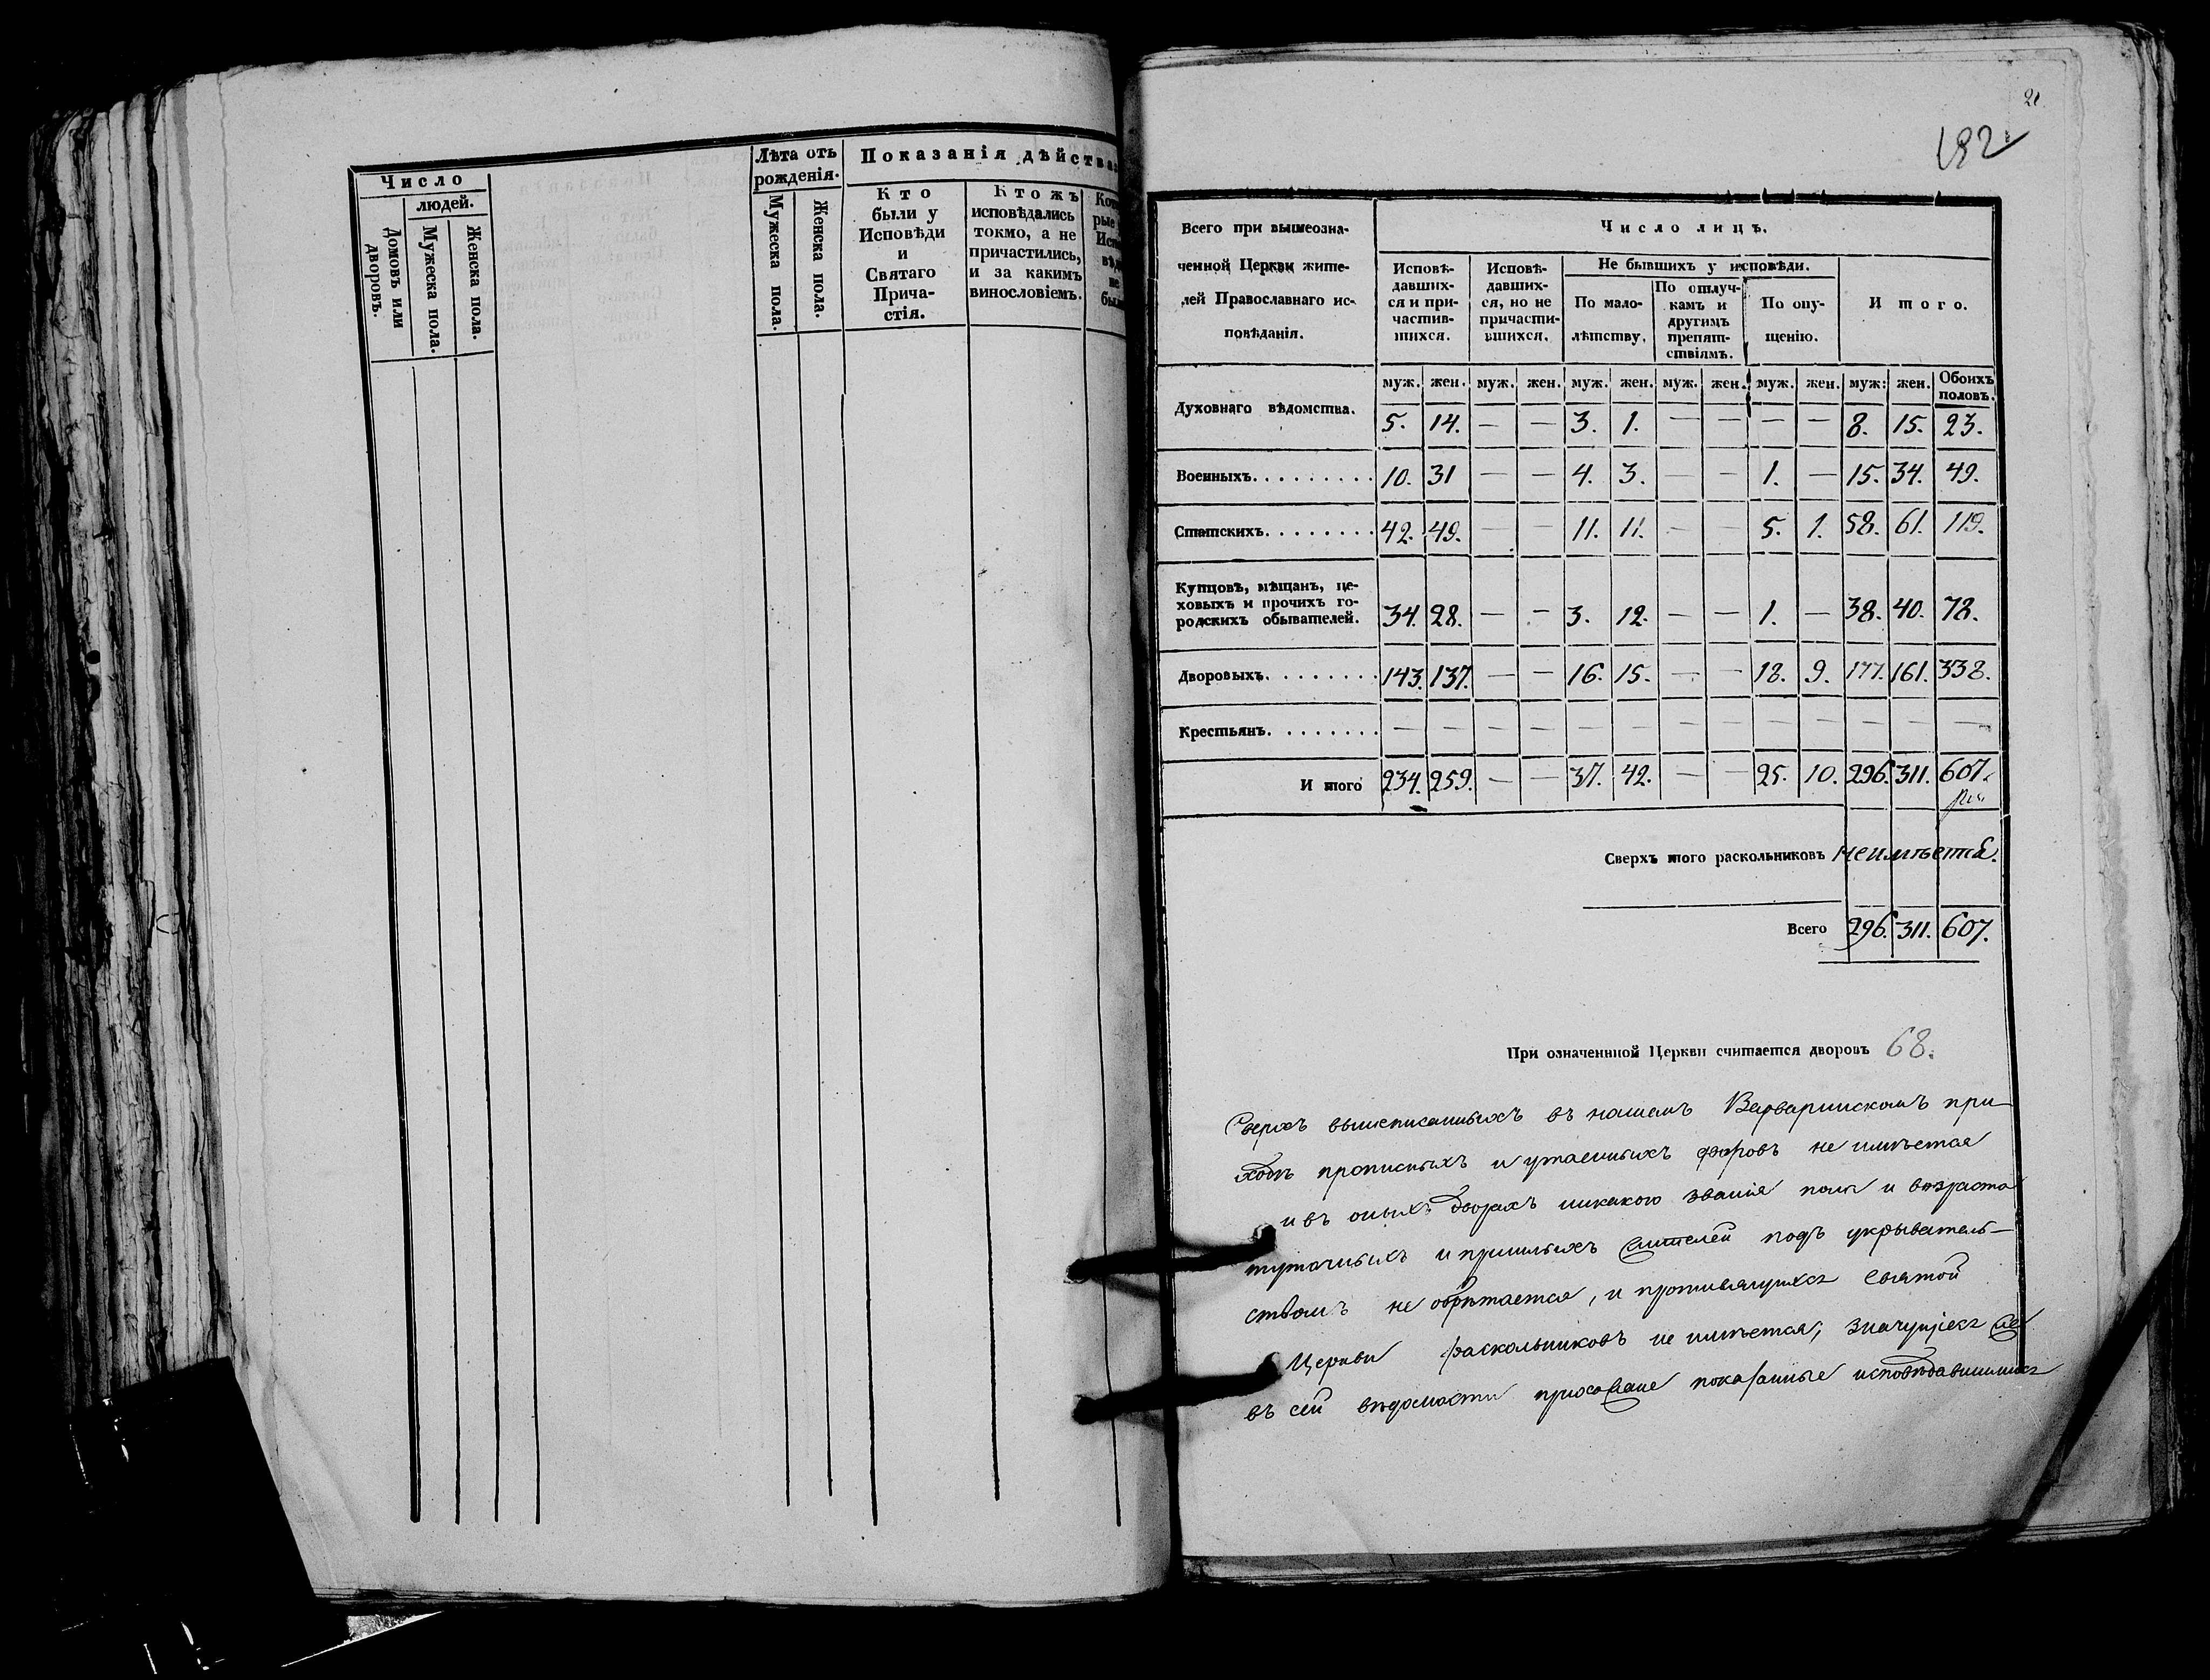 Число
людей.
Домовъ или дворовъ.
Мужеска пола.
Женска пола.
Лѣта отъ
рожденія.
Мужеска пола.
Женска пола.
Показанія дѣйства
Кто
были у
Исповѣди
и
Святаго
Прича-
стія.
Кто жъ
исповѣдались
токмо, а не
причастились,
и за какимъ
винословіемъ.
21
182
Всего при вышеозна-
ченной Церкви жите-
лей Православнаго ис-
повѣданія.
Число лицъ.
Исповѣ-
давших-
ся и при-
частив-
шихся.
Исповѣ-
давших-
ся, но не
причасти-
вшихся.
Не бывшихъ у исповѣди.
По мало-
лѣтству.
По отлуч-
камъ и
другимъ
препят-
ствіямъ.
По опу-
щенію.
Итого.
муж. жен. муж. жен. муж. жен. муж. жен. муж. жен. муж: жен. Обоихъ половъ.
Духовнаго вѣдомства. 5. 14. — — 3. 1. — — — — 8. 15. 23.
Военныхъ. . . . . . . . . 10. 31 — — 4. 3. — — 1. — 15. 34. 49.
Статскихъ. . . . . . . . 42. 49. — — 11. 11. — — 5. 1. 58. 61. 119.
Купцовъ, мѣщанъ, це-
ховыхъ и прочихъ го-
родскихъ обывателей. 34. 28. — — 3. 12. — — 1. — 38. 40. 78.
Дворовыхъ. . . . . . . . 143. 137. — — 16. 15. — — 18. 9. 177. 161. 338.
Крестьянъ. . . . . . . . — — — — — — — — — — — — —
И того 234. 259. — — 37. 42. — — 25. 10. 296. 311. 607.
Сверхъ того раскольниковъ неимѣетса.
Всего 296. 311. 607.
При означеннной Церкви считается дворовъ 68.
Сверхъ вышеписанныхъ въ нашемъ Варваринскомъ при-
ходѣ прописныхъ и утаенныхъ дворовъ не имѣется
и въ оныхъ дворахъ никакого званія пола и возраста
туточныхъ и пришлыхъ жителей подъ укрыватель-
ствомъ не обрѣтается, и противящихся Святой
Церкви раскольниковъ не имѣется; значущіеся же
въ сей вѣдомости прихожане показанные исповѣдавшимися